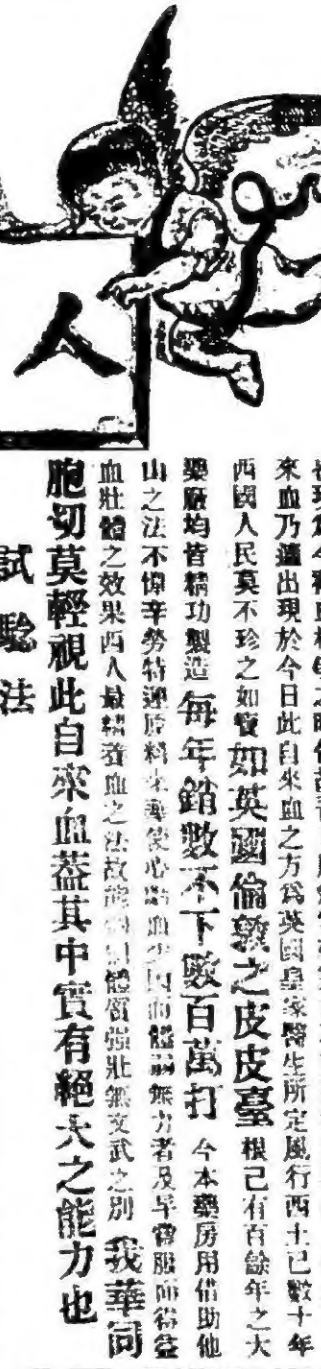 人
來血乃遂出現於今日此自來血之方爲英國皇家醫生所定風行西土已數十年
西國人民莫不珍之如寶如英國倫敦之皮皮臺根己有百餘年之大
藥廠均皆精功製造每年銷數不下數百萬打今本藥房用借助他
山之法不憚辛勞特運原料來華使心血少因而體弱無力者及早嘗服而得益
血壯體之效果西人最精蓄血之法故體質強壯無文武之別我華同
胞切莫輕視此自來血蓋其中實有絕大之能力也
試驗法